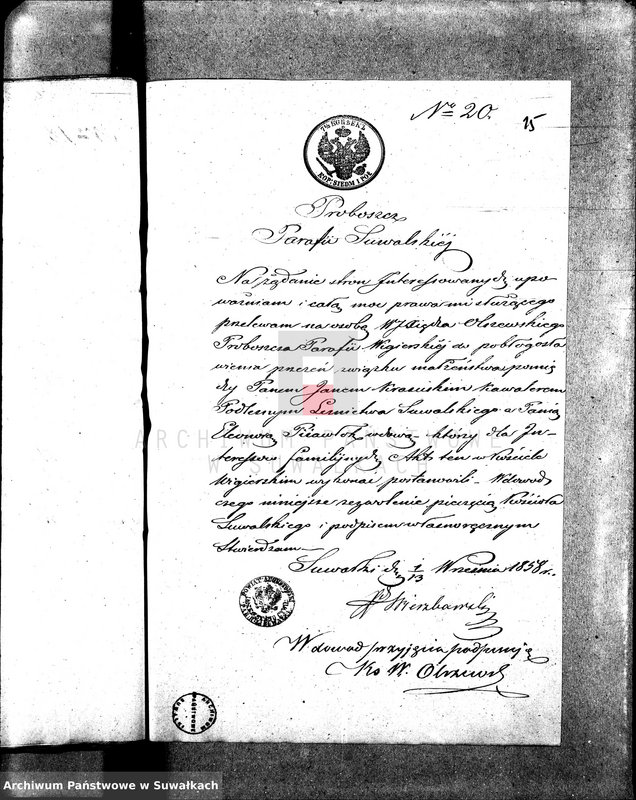 No 20.
15
7½ KOPEEK
KOP. SIEDM I PÓŁ
Proboszcz
Parafii Suwalskiéj
Na żądanie stron Interessowanych upo
ważniam i całą moc prawa mi służącego
przelewam na osobę WJXiędza Olszewskiego
Proboszcza Parafii Wigierskiéj do pobłogosła
wienia przezeń związku małżeństwa pomię
dzy Panem Janem Krasuskim Kawalerem
Podleśnym Leśnictwa Suwalskiego a Panią
Eleonorą wdową – którzy dla In-
teressów familijnych Akt ten w Kościele
Wigierskim wykonać postanowili – W dowod
czego niniejsze zezwolenie pieczęcią Kościoła
Suwalskiego i podpisem własnoręcznym
Stwierdzam –
Suwałki d. 1/13 Września 1858 r.
Wierzbowski
W dowod przyjęcia podpisuję
Ks W. Olszewski
ARCHIWUM PAŃSTWOWE
W SUWAŁKACH
ARCHIWUM PAŃSTWOWE
Archiwum Państwowe w Suwałkach